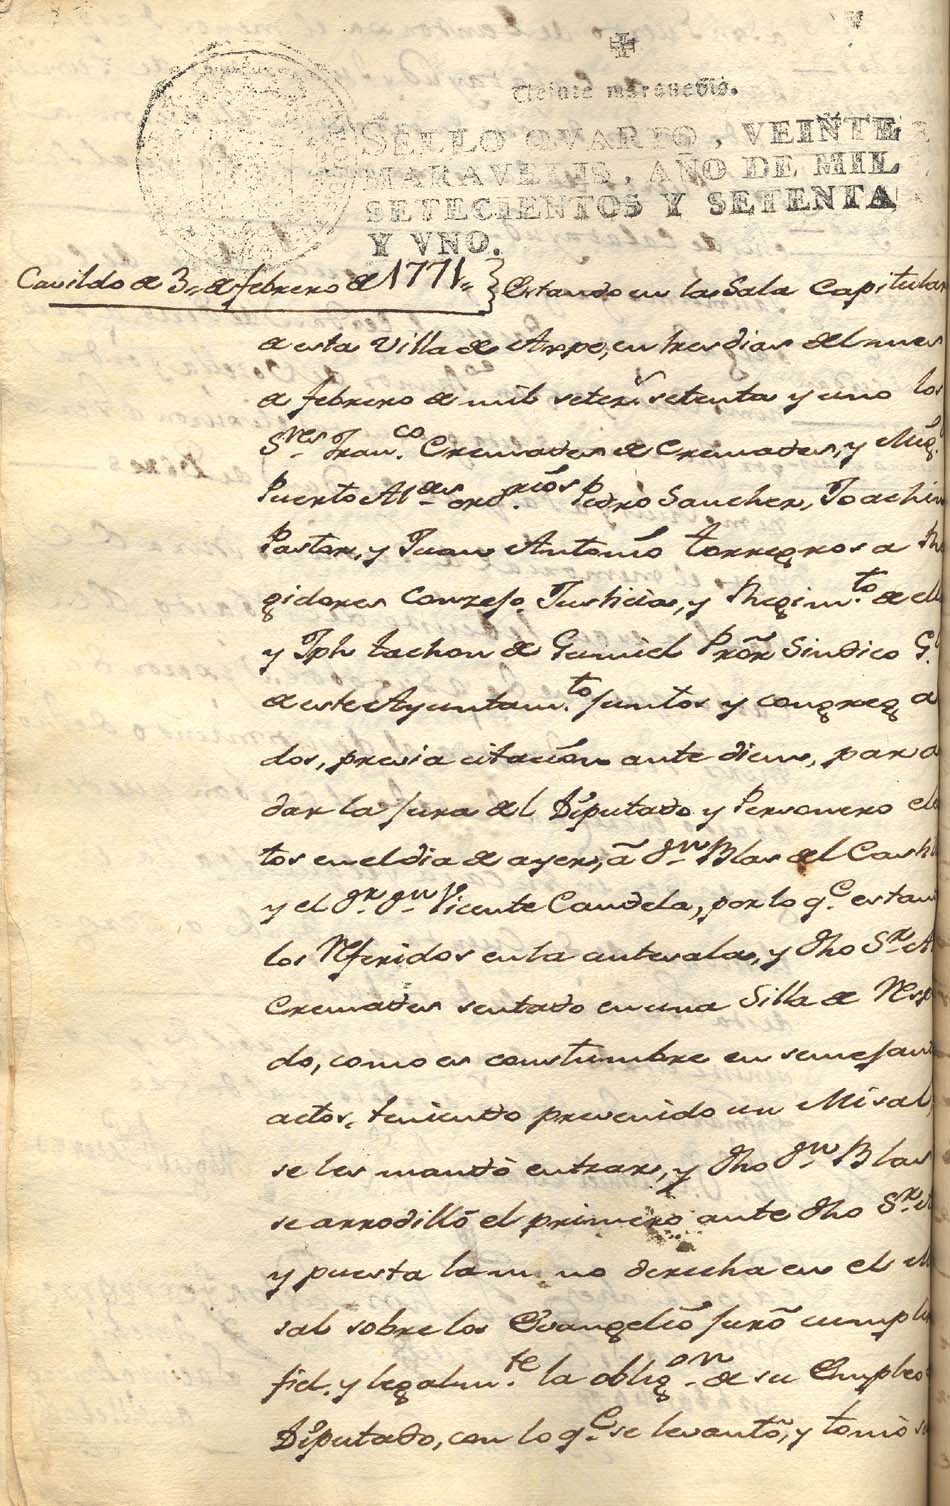 Veinte maravedis.
SELLO QVARTO, VEINTE
MARAVEDIS, AÑO DE MIL
SETECIENTOS Y SETENTA
Y VNO.
Cavildo de 3,, de febrero de 1771,, Estando en la Sala Capitular
de esta Villa de Aspe, en tres dias del mes
de febrero de mil seteз. setenta y uno los
Sres. Franco. Cremades de Cremades, y Mig.l
Puerto Aldes. ordrios. Pedro Sanchez, Joachin
Pastor, y Juan Antonio torregrosa Re
gidores Conzejo, Justicia, y Regimto. de ella
y Jph tachon de Gumiel Pror Sindico G.l
de este Ayuntamto. juntos y congrega
dos, previa citacion ante diem, para
dar la jura del Diputado y Personero elec
tos en el dia de ayer, á Dn. Blas del Casti
y el Dr. Dn. Vicente Candela, por lo qe. estan
los Referidos en la antesala, y dho Sr. Al
Cremades sentado en una Silla de Resp
do, como es constumbre en semejan
actos, teniendo prevenido un Misal,
se les mandò entrar, y dho Dn. Blas
se arrodilló el primero ante dho Sr.
y puesta la mano derecha en el Mi
sal sobre los Evangelio juró cumplir
fiel, y legalmte. la obligon. de su Empleo
Diputado, con lo qe. se levantó, y tomó su